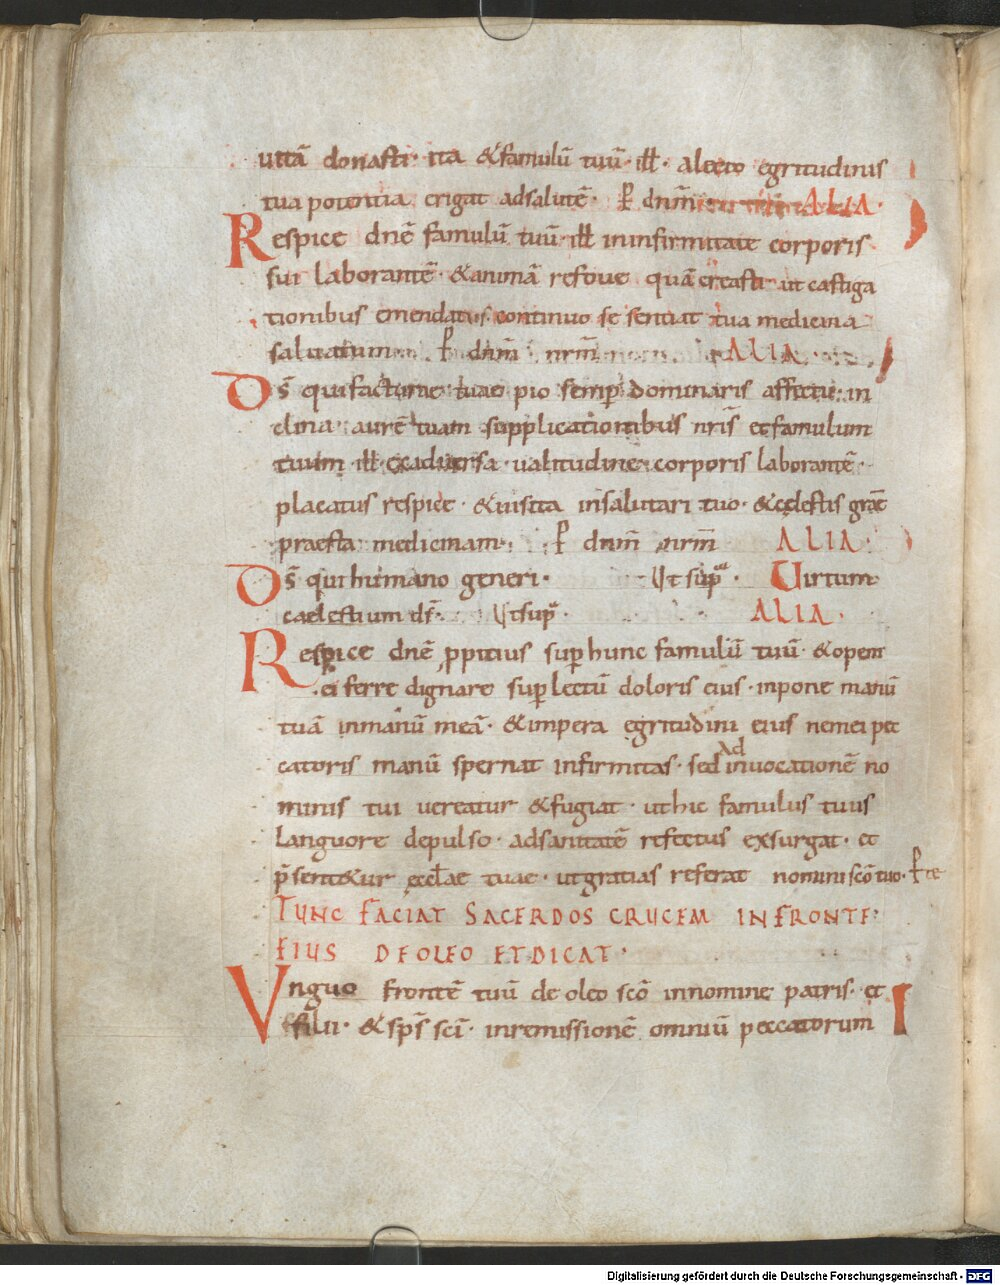 uitā donasti· ita &famulū tuū· ill̅· alecto egritudinis
tua potentia erigat adsalutē· P̄ dnm̄ ALIA·
Respice dnē famulū tuū· ill̅ ininfirmitate corporis
sui laborantē· &animā refove quā creasti· ut castiga
tionibus emendatus· continuo se sentiat tua medicina
saluatum P̄ dnm̄ nrm̄ ALIA·
Ds̄ qui facturae tuae pio semp̄ dominaris affectu· in
clina· aurē tuam supplicationibus nris̄ et famulum
tuum· ill̅· exadversa· ualitudine· corporis laborantē·
placatus respice· &uisita insalutari tuo· &cęlestis grāe
praesta medicinam· P̄ dnm̄ nrm̄ ALIA·
Ds̄ qui humano generi· Ut sup̄ᵃ· Uirtum
caelestium ds̄· Ut sup̄ᵃ· ALIA·
Respice dnē ꝓpitius sup̄ hunc famulū tuū· &opem
ei ferre dignare sup̄ lectū doloris eius· inpone manū
tuā inmanū meā· &impera egritudini eius nemei pec
catoris manū spernat infirmitas· sed Ad inuocationē no
minis tui uereatur &fugiat· uthic famulus tuus
languore depulso· adsanitatē refectus exsurgat· et
p̄sent&ur ęccl̄ae tuae· utgratias referat nomini scō tuo· P̄
TUNC FACIAT SACERDOS CRUCEM IN FRONTE·
EIUS DE OLEO ET DICAT·
Unguo frontē tuū de oleo scō innomine patris· et
filii· &sps̄ sci̅· inremissionē omniū peccatorum
Digitalisierung gefördert durch die Deutsche Forschungsgemeinschaft - DFG